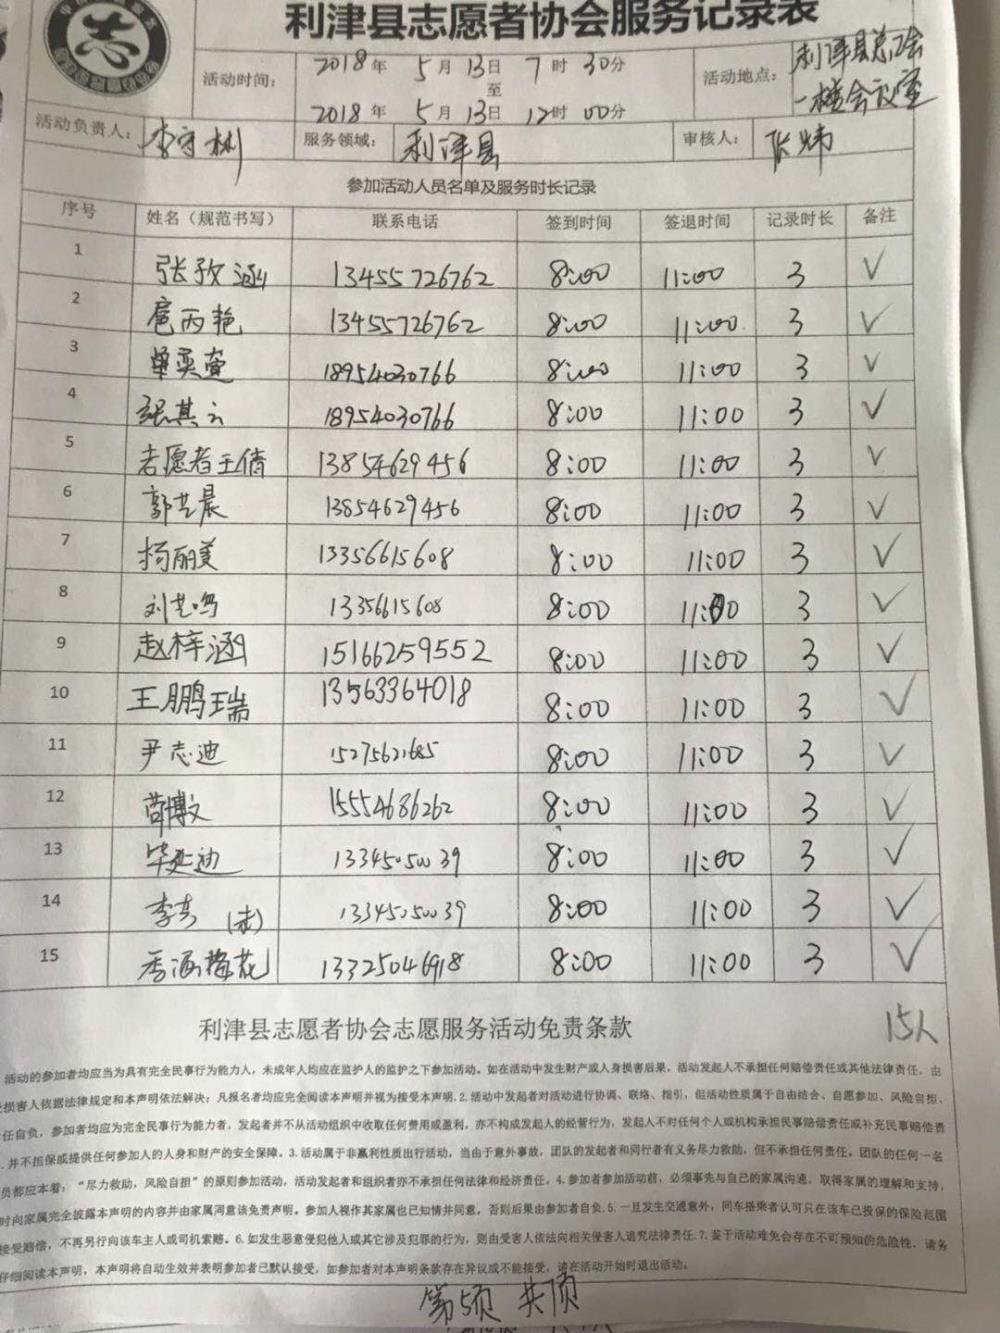 利津县志愿者协会服务记录表
志
活动时间： 2018年 5月 13日 7时 30分 至 2018年 5月 13日 12时 00分 活动地点： 利津县总工会一楼会议室
活动负责人： 李守彬 服务领域： 利津县 审核人： 张炜
参加活动人员名单及服务时长记录
序号 姓名（规范书写） 联系电话 签到时间 签退时间 记录时长 备注
1 张孜涵 13455726762 8:00 11:00 3 ✓
2 扈丙艳 13455726762 8:00 11:00 3 ✓
3 单奕萱 18954030766 8:00 11:00 3 ✓
4 綦其云 18954030766 8:00 11:00 3 ✓
5 志愿者王倩 13854629456 8:00 11:00 3 ✓
6 郭艺晨 13854629456 8:00 11:00 3 ✓
7 杨丽美 13356615608 8:00 11:00 3 ✓
8 刘艺鸣 13356615608 8:00 11:00 3 ✓
9 赵梓涵 15166259552 8:00 11:00 3 ✓
10 王鹏瑞 13563364018 8:00 11:00 3 ✓
11 尹志迪 15275621685 8:00 11:00 3 ✓
12 苗博文 15554686262 8:00 11:00 3 ✓
13 毕延迪 13345050039 8:00 11:00 3 ✓
14 李芳 13345050039 8:00 11:00 3 ✓
15 香涵梅花 13325046918 8:00 11:00 3 ✓
利津县志愿者协会志愿服务活动免责条款 15人
活动的参加者均应当为具有完全民事行为能力人，未成年人均应在监护人的监护之下参加活动。如在活动中发生财产或人身损害后果，活动发起人不承担任何赔偿责任或其他法律责任，由
损害人依据法律规定和本声明依法解决；凡报名者均应完全阅读本声明并视为接受本声明.2.活动中发起者对活动进行协调、联络、指引，但活动性质属于自由结合、自愿参加、风险自担、
任自负，参加者均应为完全民事行为能力者，发起者并不从活动组织中收取任何费用或盈利，亦不构成发起人的经营行为，发起人不对任何个人或机构承担民事赔偿责任或补充民事赔偿责
.并不担保或提供任何参加人的人身和财产的安全保障。3.活动属于非赢利性质出行活动，当由于意外事故，团队的发起者和同行者有义务尽力救助，但不承担任何责任。团队的任何一名
员都应本着：“尽力救助，风险自担”的原则参加活动，活动发起者和组织者亦不承担任何法律和经济责任。4.参加者参加活动前，必须事先与自己的家属沟通，取得家属的理解和支持，
时向家属完全披露本声明的内容并由家属同意该免责声明。参加人视作其家属也已知情并同意，否则后果由参加者自负.5.一旦发生交通意外，同车搭乘者认可只在该车已投保的保险范围
接受赔偿，不再另行向该车主人或司机索赔。6.如发生恶意侵犯他人或其它涉及犯罪的行为，则由受害人依法向相关侵害人追究法律责任.7.鉴于活动难免会存在不可预知的危险性，请务
仔细阅读本声明，本声明将自动生效并表明参加者已默认接受，如参加者对本声明条款存在异议或不能接受，请在活动开始时退出活动。
第5页 共 页